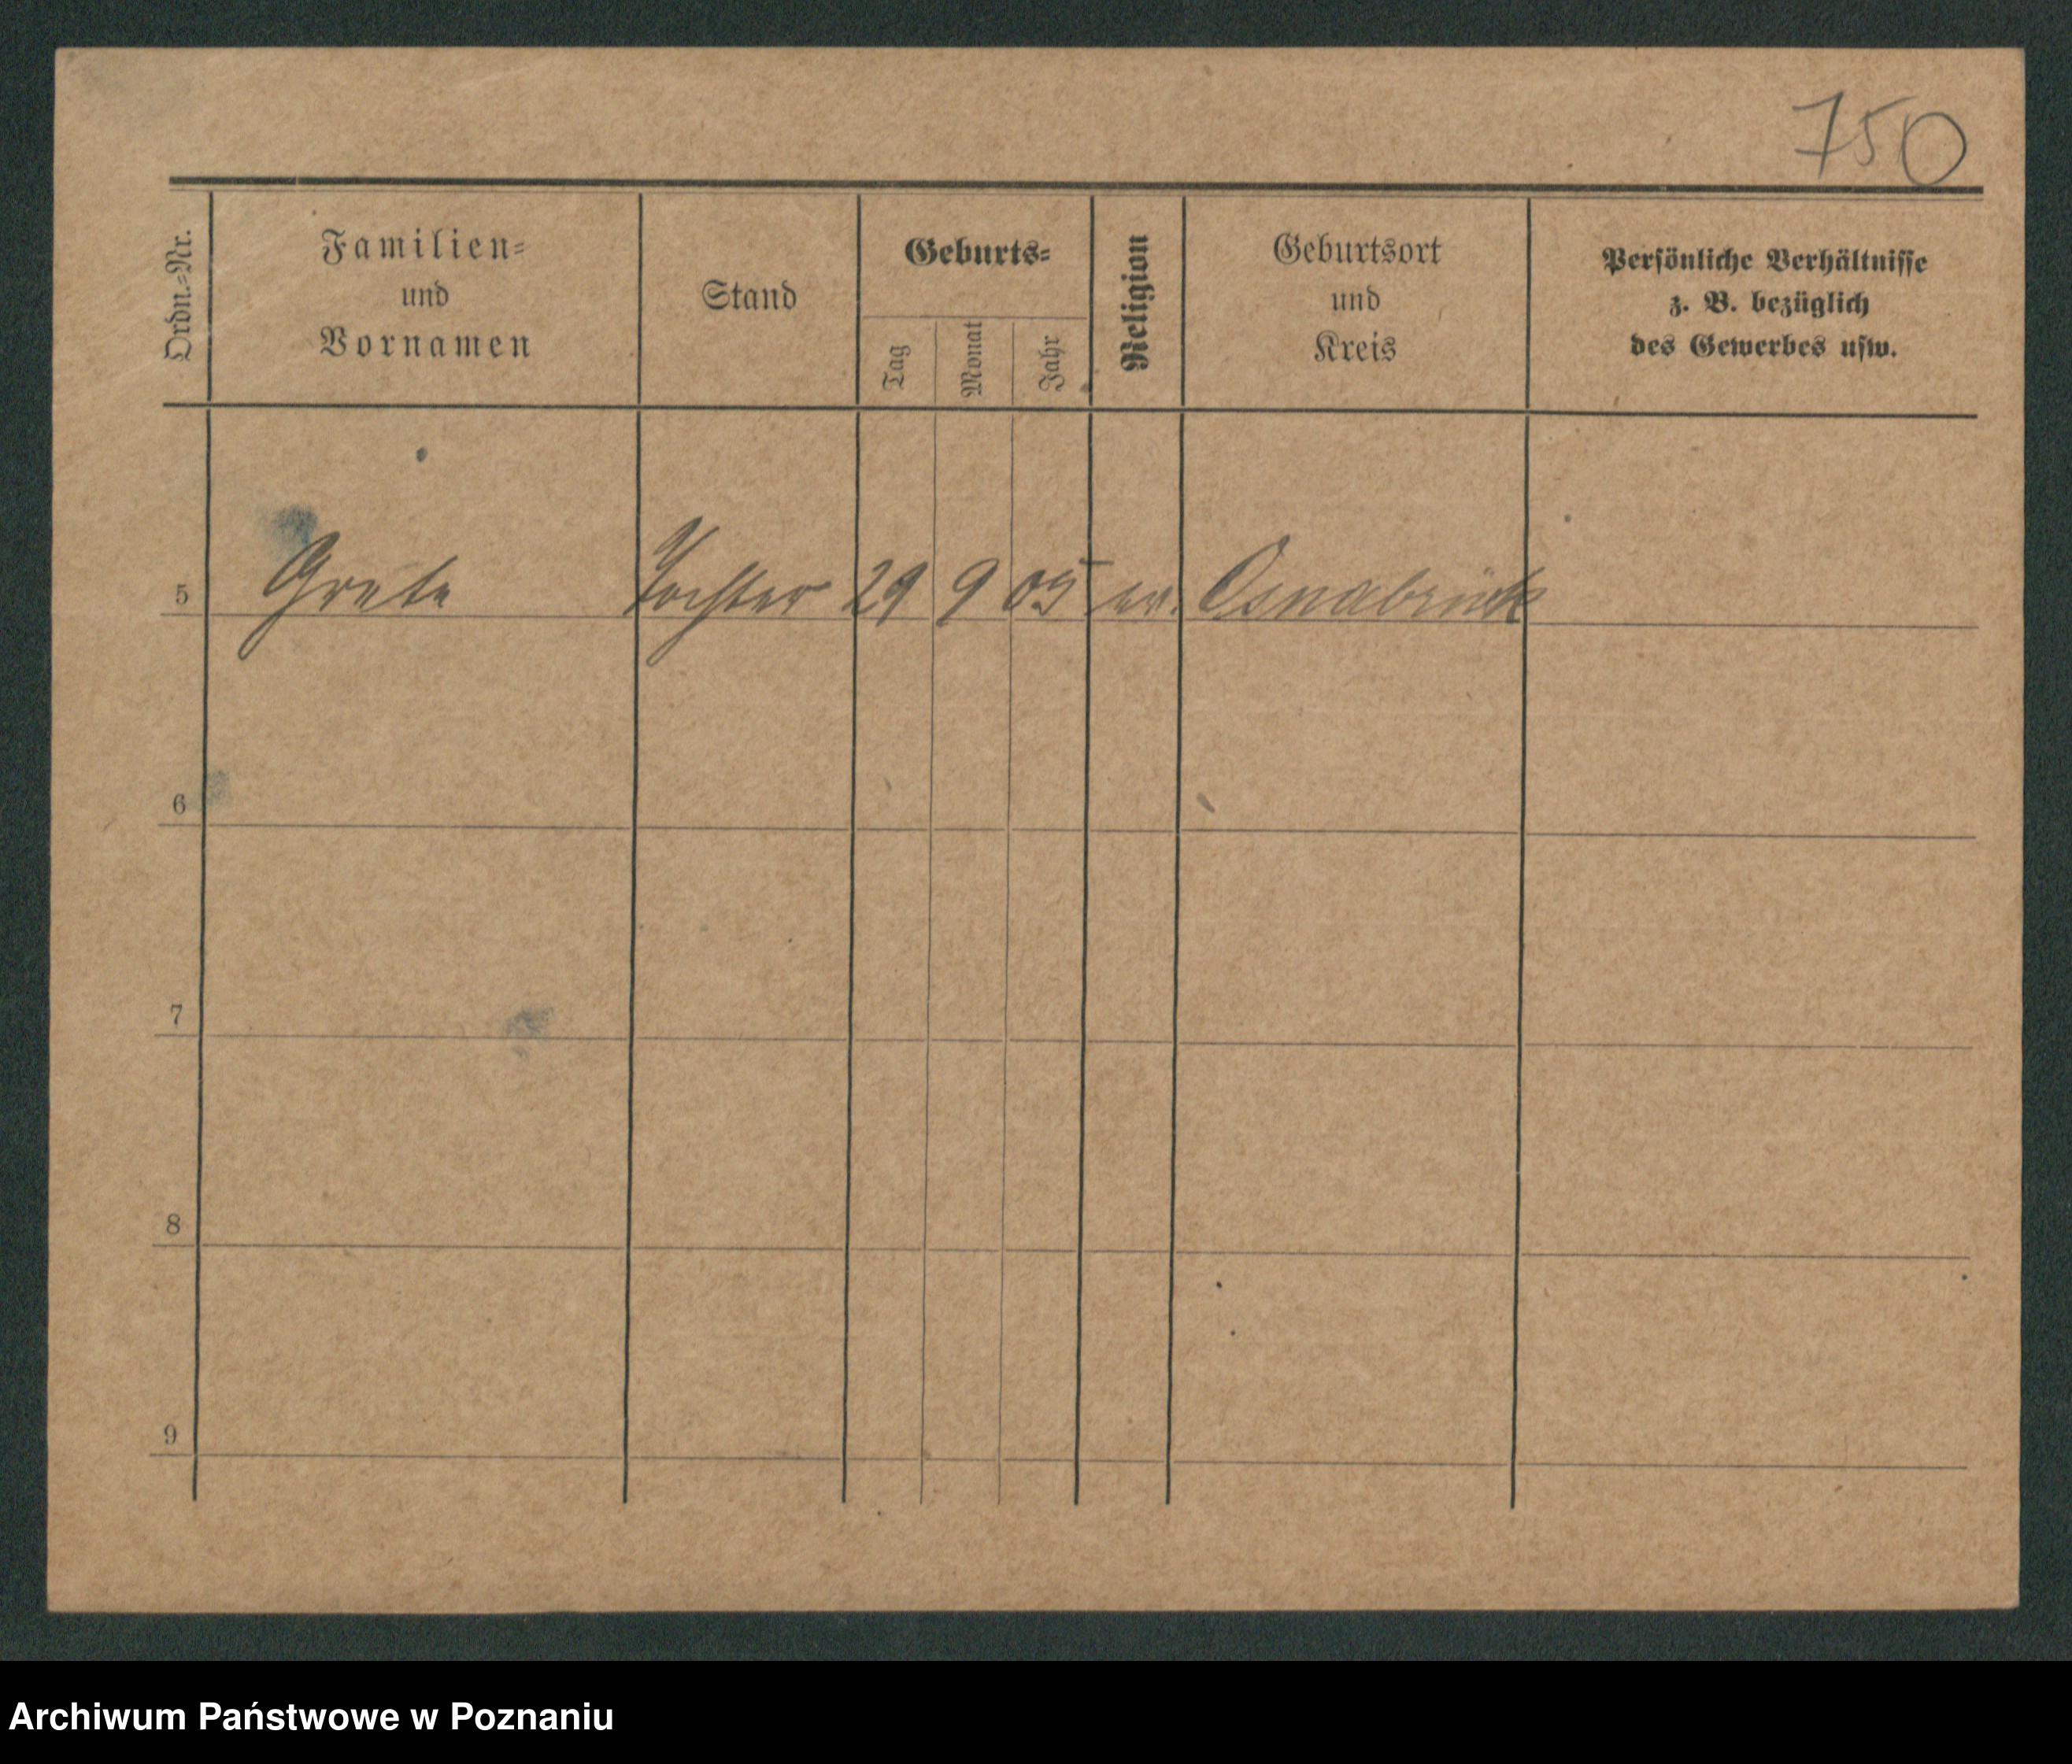 750
Ordn.=Nr.
Familien=
und
Vornamen
Stand
Geburts=
Tag
Monat
Jahr
Religion
Geburtsort
und
Kreis
Persönliche Verhältnisse
z. B. bezüglich
des Gewerbes usw.
5 Grete Tochter 29 9 05 ev. Osnabrück
6
7
8
9
Archiwum Państwowe w Poznaniu